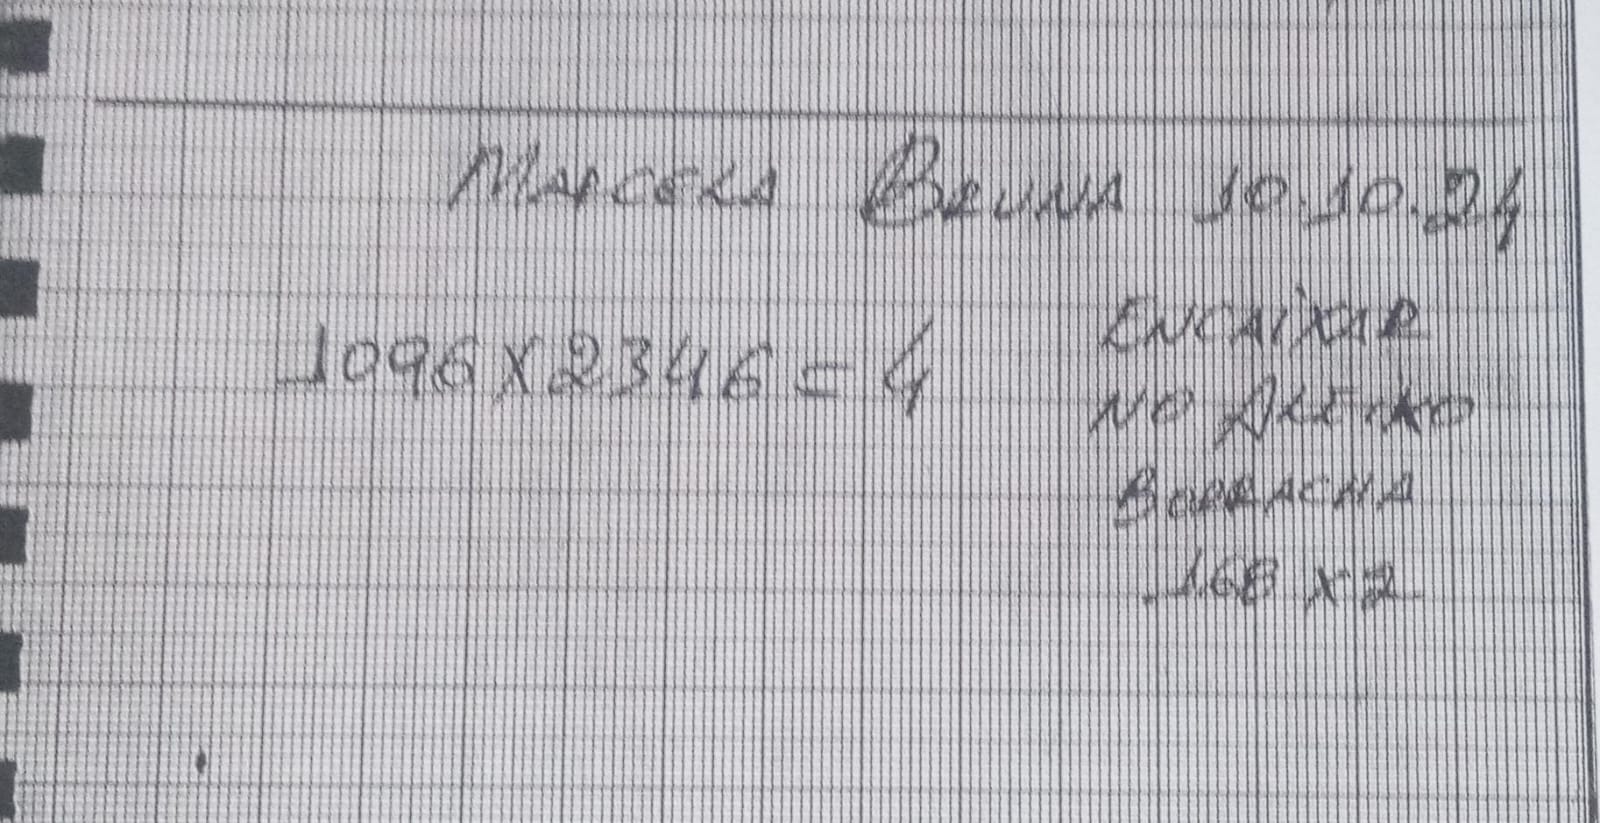 MARCELA BRUNA 10.10.24
1096X2346=4
ENCAIXAR
NO
BORRACHA
168 X 2